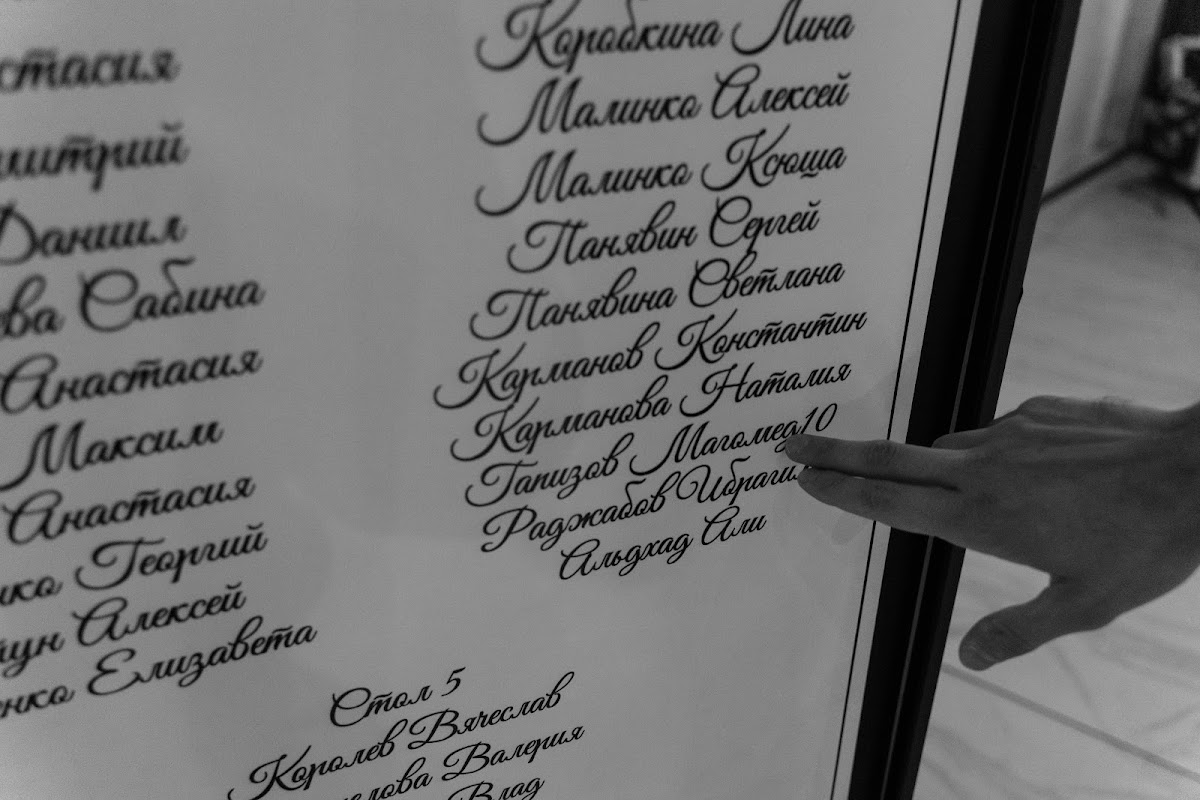 Анастасия
Дмитрий
Даниил
Сабина
Анастасия
Максим
Анастасия
Георгий
Алексей
Елизавета
Коробкина Лина
Малинко Алексей
Малинко Ксюша
Панявин Сергей
Панявина Светлана
Карманов Константин
Карманова Наталия
Гапизов Магомед10
Раджабов Ибрагим
Альдхад Али
Стол 5
Королев Вячеслав
Валерия
Влад